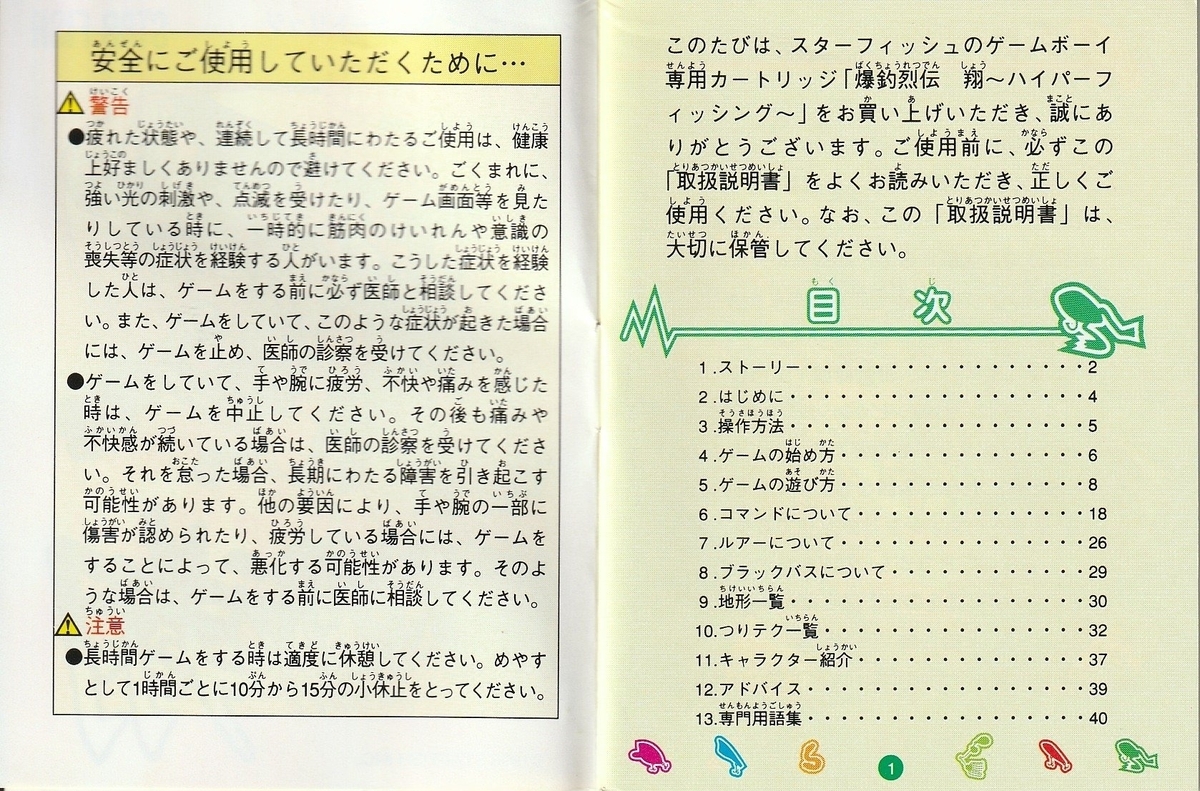 安全にご使用していただくために…
警告
●疲れた状態や、連続して長時間にわたるご使用は、健康
上好ましくありませんので避けてください。ごくまれに、
強い光の刺激や、点滅を受けたり、ゲーム画面等を見た
りしている時に、一時的に筋肉のけいれんや意識の
喪失等の症状を経験する人がいます。こうした症状を経験
した人は、ゲームをする前に必ず医師と相談してくださ
い。また、ゲームをしていて、このような症状が起きた場合
には、ゲームを止め、医師の診察を受けてください。
●ゲームをしていて、手や腕に疲労、不快や痛みを感じた
時は、ゲームを中止してください。その後も痛みや
不快感が続いている場合は、医師の診察を受けてくださ
い。それを怠った場合、長期にわたる障害を引き起こす
可能性があります。他の要因により、手や腕の一部に
傷害が認められたり、疲労している場合には、ゲームを
することによって、悪化する可能性があります。そのよ
うな場合は、ゲームをする前に医師に相談してください。
注意
●長時間ゲームをする時は適度に休憩してください。めやす
として1時間ごとに10分から15分の小休止をとってください。
このたびは、スターフィッシュのゲームボーイ
専用カートリッジ「爆釣烈伝 翔〜ハイパーフ
ィッシング〜」をお買い上げいただき、誠にあ
りがとうございます。ご使用前に、必ずこの
「取扱説明書」をよくお読みいただき、正しくご
使用ください。なお、この「取扱説明書」は、
大切に保管してください。
目次
1.ストーリー・・・・・・・・・・・・・・・・・2
2.はじめに・・・・・・・・・・・・・・・・・・4
3.操作方法・・・・・・・・・・・・・・・・・・5
4.ゲームの始め方・・・・・・・・・・・・・・・6
5.ゲームの遊び方・・・・・・・・・・・・・・・8
6.コマンドについて・・・・・・・・・・・・・・18
7.ルアーについて・・・・・・・・・・・・・・・26
8.ブラックバスについて・・・・・・・・・・・・29
9.地形一覧・・・・・・・・・・・・・・・・・・30
10.つりテク一覧・・・・・・・・・・・・・・・・32
11.キャラクター紹介・・・・・・・・・・・・・・37
12.アドバイス・・・・・・・・・・・・・・・・・39
13.専門用語集・・・・・・・・・・・・・・・・・40
1